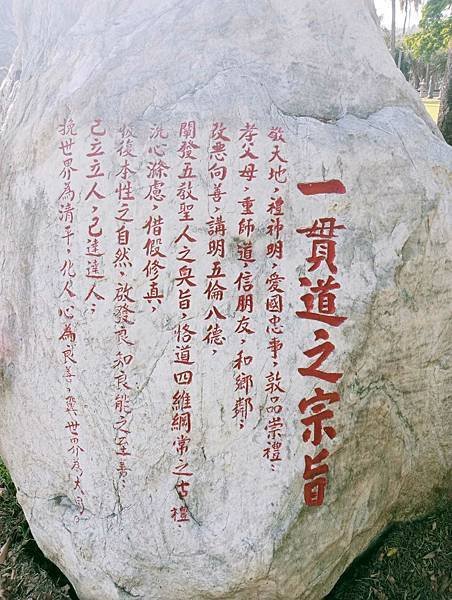 一貫道之宗旨
敬天地，禮神明，愛國忠事，敦品崇禮：
孝父母，重師道，信朋友，和鄉鄰；
改惡向善，講明五倫八德，
闡發五教聖人之奧旨，恪遵四維綱常之古禮．
洗心滌慮，借假修真，
恢復本性之自然，啟發良知良能之至善：
己立立人，己達達人；
挽世界為清平，化人心為良善，冀世界為大同。